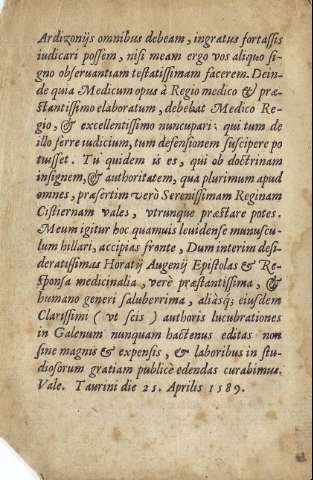 Ardizonijs omnibus debeam, ingratus fortassis
iudicari possem, nisi meam ergo vos aliquo si-
gno obseruantiam testatissimam facerem. Dein-
de quia Medicum opus à Regio medico & præ-
stantissimo elaboratum, debebat Medico Re-
gio, & excellentissimo nuncupari: qui tum de
illo ferre iudicium, tum defensionem suscipere po
tuisset. Tu quidem is es, qui ob doctrinam
insignem, & authoritatem, qua plurimum apud
omnes, præsertim verò Serenissimam Reginam
Cistiernam vales, vtrunque præstare potes.
Meum igitur hoc quamuis leuidense munuscu-
lum hillari, accipias fronte, Dum interim desi-
deratissimas Horatij Augenij Epistolas & Re-
sponsa medicinalia, verè præstantissima, &
humano generi saluberrima, aliàsq; eiusdem
Clarissimi ( vt scis ) authoris lucubrationes
in Galenum nunquam hactenus editas non
sine magnis & expensis, & laboribus in stu-
diosorum gratiam publicè edendas curabimus.
Vale. Taurini die 25. Aprilis 1589.